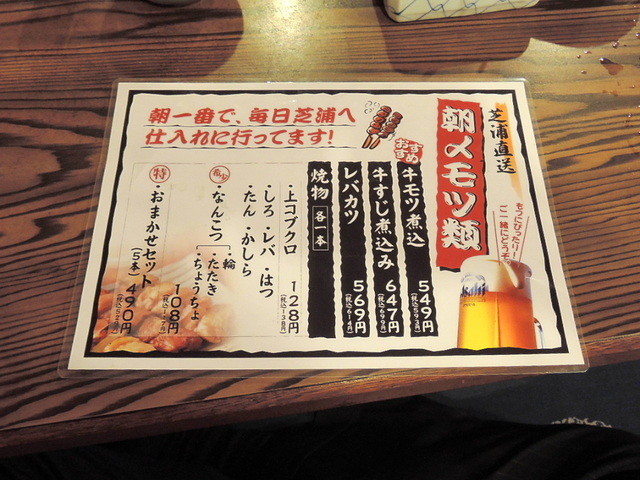 芝浦直送
朝〆モツ類
もつにぴったり!
ご一緒にどうぞ
Asahi
おすすめ
牛モツ煮込 549円
(税込593円)
牛すじ煮込み 647円
レバカツ 569円
(税込614円)
焼物 各一本
・上コブクロ 128円
(税込138円)
・しろ・レバ・はつ
・たん・かしら
・なんこつ
輪
・たたき
・ちょうちょ
108円
特
・おまかせセット
(5本) 490円
(税込529円)
朝一番で、毎日芝浦へ
仕入れに行ってます!